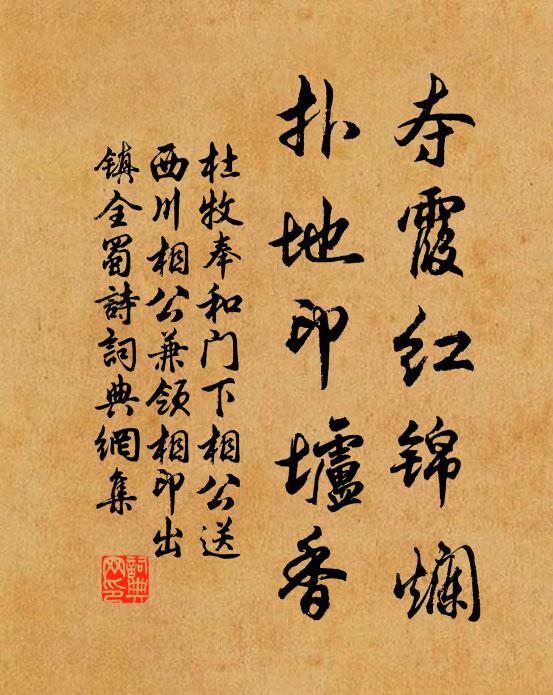 夺霞红锦烂
扑地印垆香
杜牧奉和门下相公送
西川相公兼领相印出
镇全蜀詩詞典網集
詞典网印